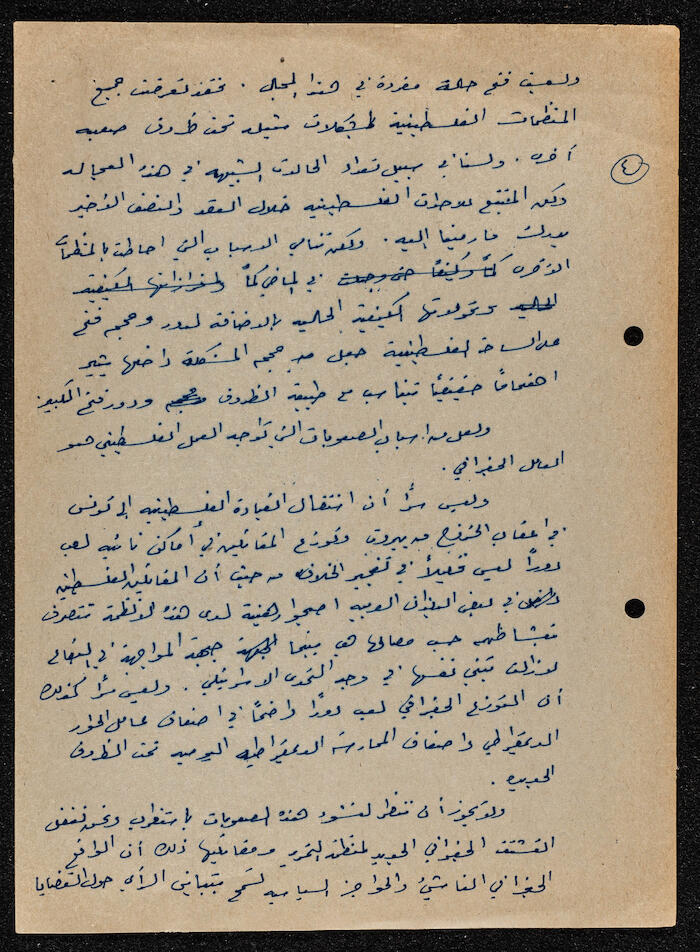 وليست فتح حالة مفردة في هذا المجال . فقد تعرضت جميع
المنظمات الفلسطينية لمشكلات مثيلة تحت ظروف صعبة
٤
أخرى . ولسنا في سبيل تعداد الحالات الشبيهة في هذه العجالة
ولكن المتتبع للاحداث الفلسطينية خلال العقد والنصف الأخير
يدرك ما رمينا إليه . ولكن تنامي الاسباب التي احاطت بالمنظمات
الأخرى كماً وكيفاً في الماضي كماً
وتحولاتها الكيفية الحالية بالاضافة لدور وحجم فتح
على الساحة الفلسطينية جعل من حجم المشكلة داخلها يثير
اهتماماً حقيقياً تتناسب مع طبيعة الظروف ودور فتح الكبير
ولعل من اسباب الصعوبات التي تواجه العمل الفلسطيني هو
العامل الجغرافي .
وليس سراً أن انتقال القيادة الفلسطينية إلى تونس
في اعقاب الخروج من بيروت وتوزع المقاتلين في أماكن نائية لعب
دوراً ليس قليلاً في تفجير الخلاف من حيث أن المقاتلين الفلسطينيين
في بعض البلدان العربية اصبحوا رهينة لدى هذه الأنظمة تتصرف
بنشاطهم حسب مصالحها هي بينما جبهة المواجهة في البقاع
لازالت تبني نفسها في وجه التحدي الاسرائيلي . وليس سراً كذلك
أن التوزع الجغرافي لعب دوراً واضحاً في اضعاف عامل الحوار
الديمقراطي واضعاف الممارسة الديمقراطية اليومية تحت الظروف
الجديدة .
ولا يجوز أن ننظر لنشوء هذه الصعوبات باستغراب ونحن نغفل
التشتت الجغرافي الجديد لمنظمة التحرير ومقاتليها ذلك أن الواقع
الجغرافي الناشئ والحواجز السياسية تسمح بتباين الرأي حول القضايا